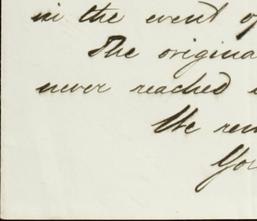 in the event of
The origina
never reached
We rem
You